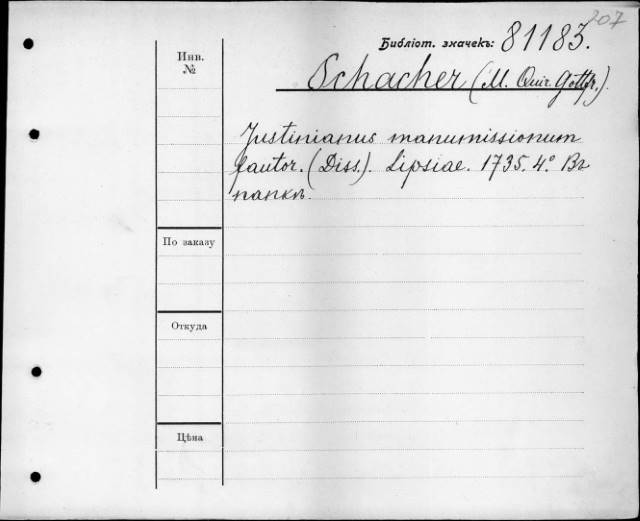 207
Библіот. значекъ: 81183.
Инв.
№
Schacher (M. Quir. Gottfr.).
Justinianus manumissionum
fautor. (Diss.). Lipsiae. 1735. 4° Въ
папкѣ.
По заказу
Откуда
Цѣна